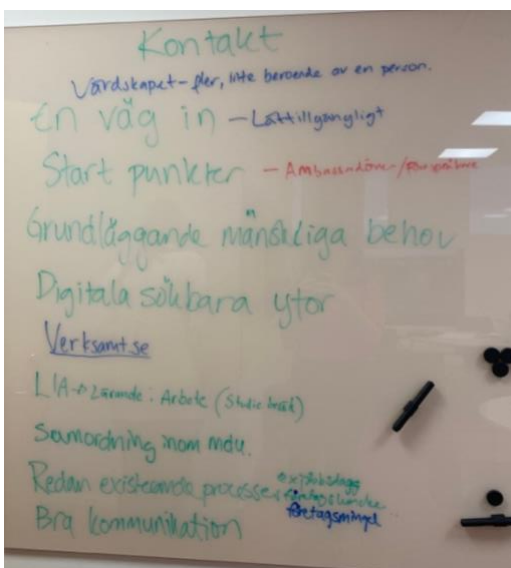 Kontakt
Värdskapet - fler, inte beroende av en person.
En väg in - Lättillgängligt
Start punkter - Ambassadörer/
Grundläggande mänskliga behov
Digitala sökbara ytor
Verksamt.se
LIA → Lärande i Arbete (Studie besök)
Samordning inom mdu.
Redan existerande processer exjobbsdagg
företagsmingel
Bra kommunikation